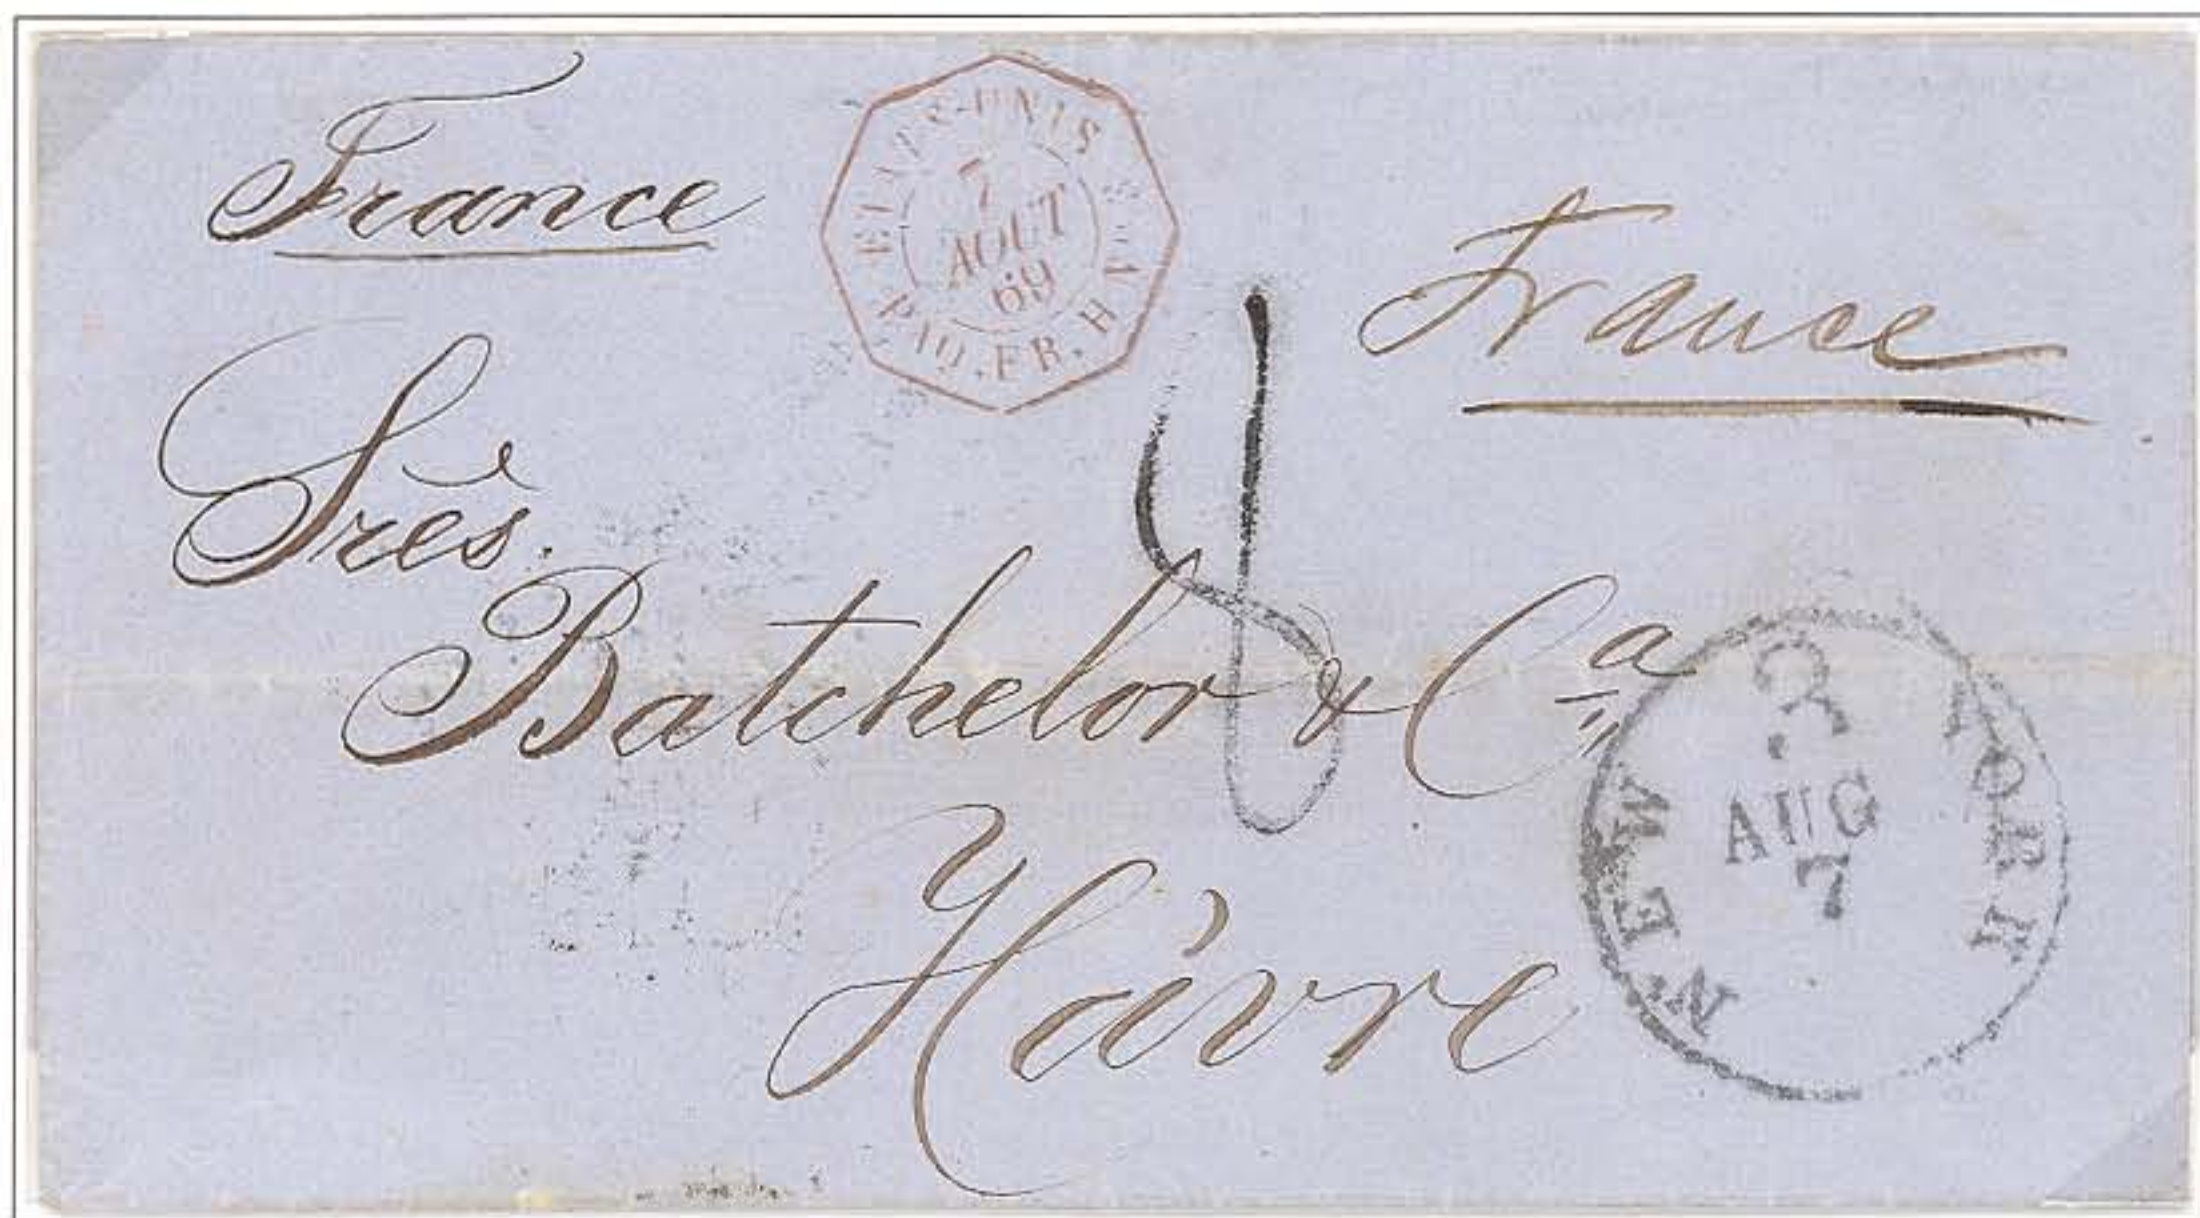 France
ETATS-UNIS
7
AOUT
69
PAQ. FR. H
France
Sres.
Batchelor & Ca
Hávre
3
AUG
7
NEW YORK